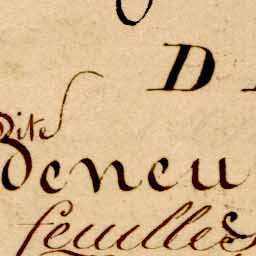 D
dite
deneu
feuilles